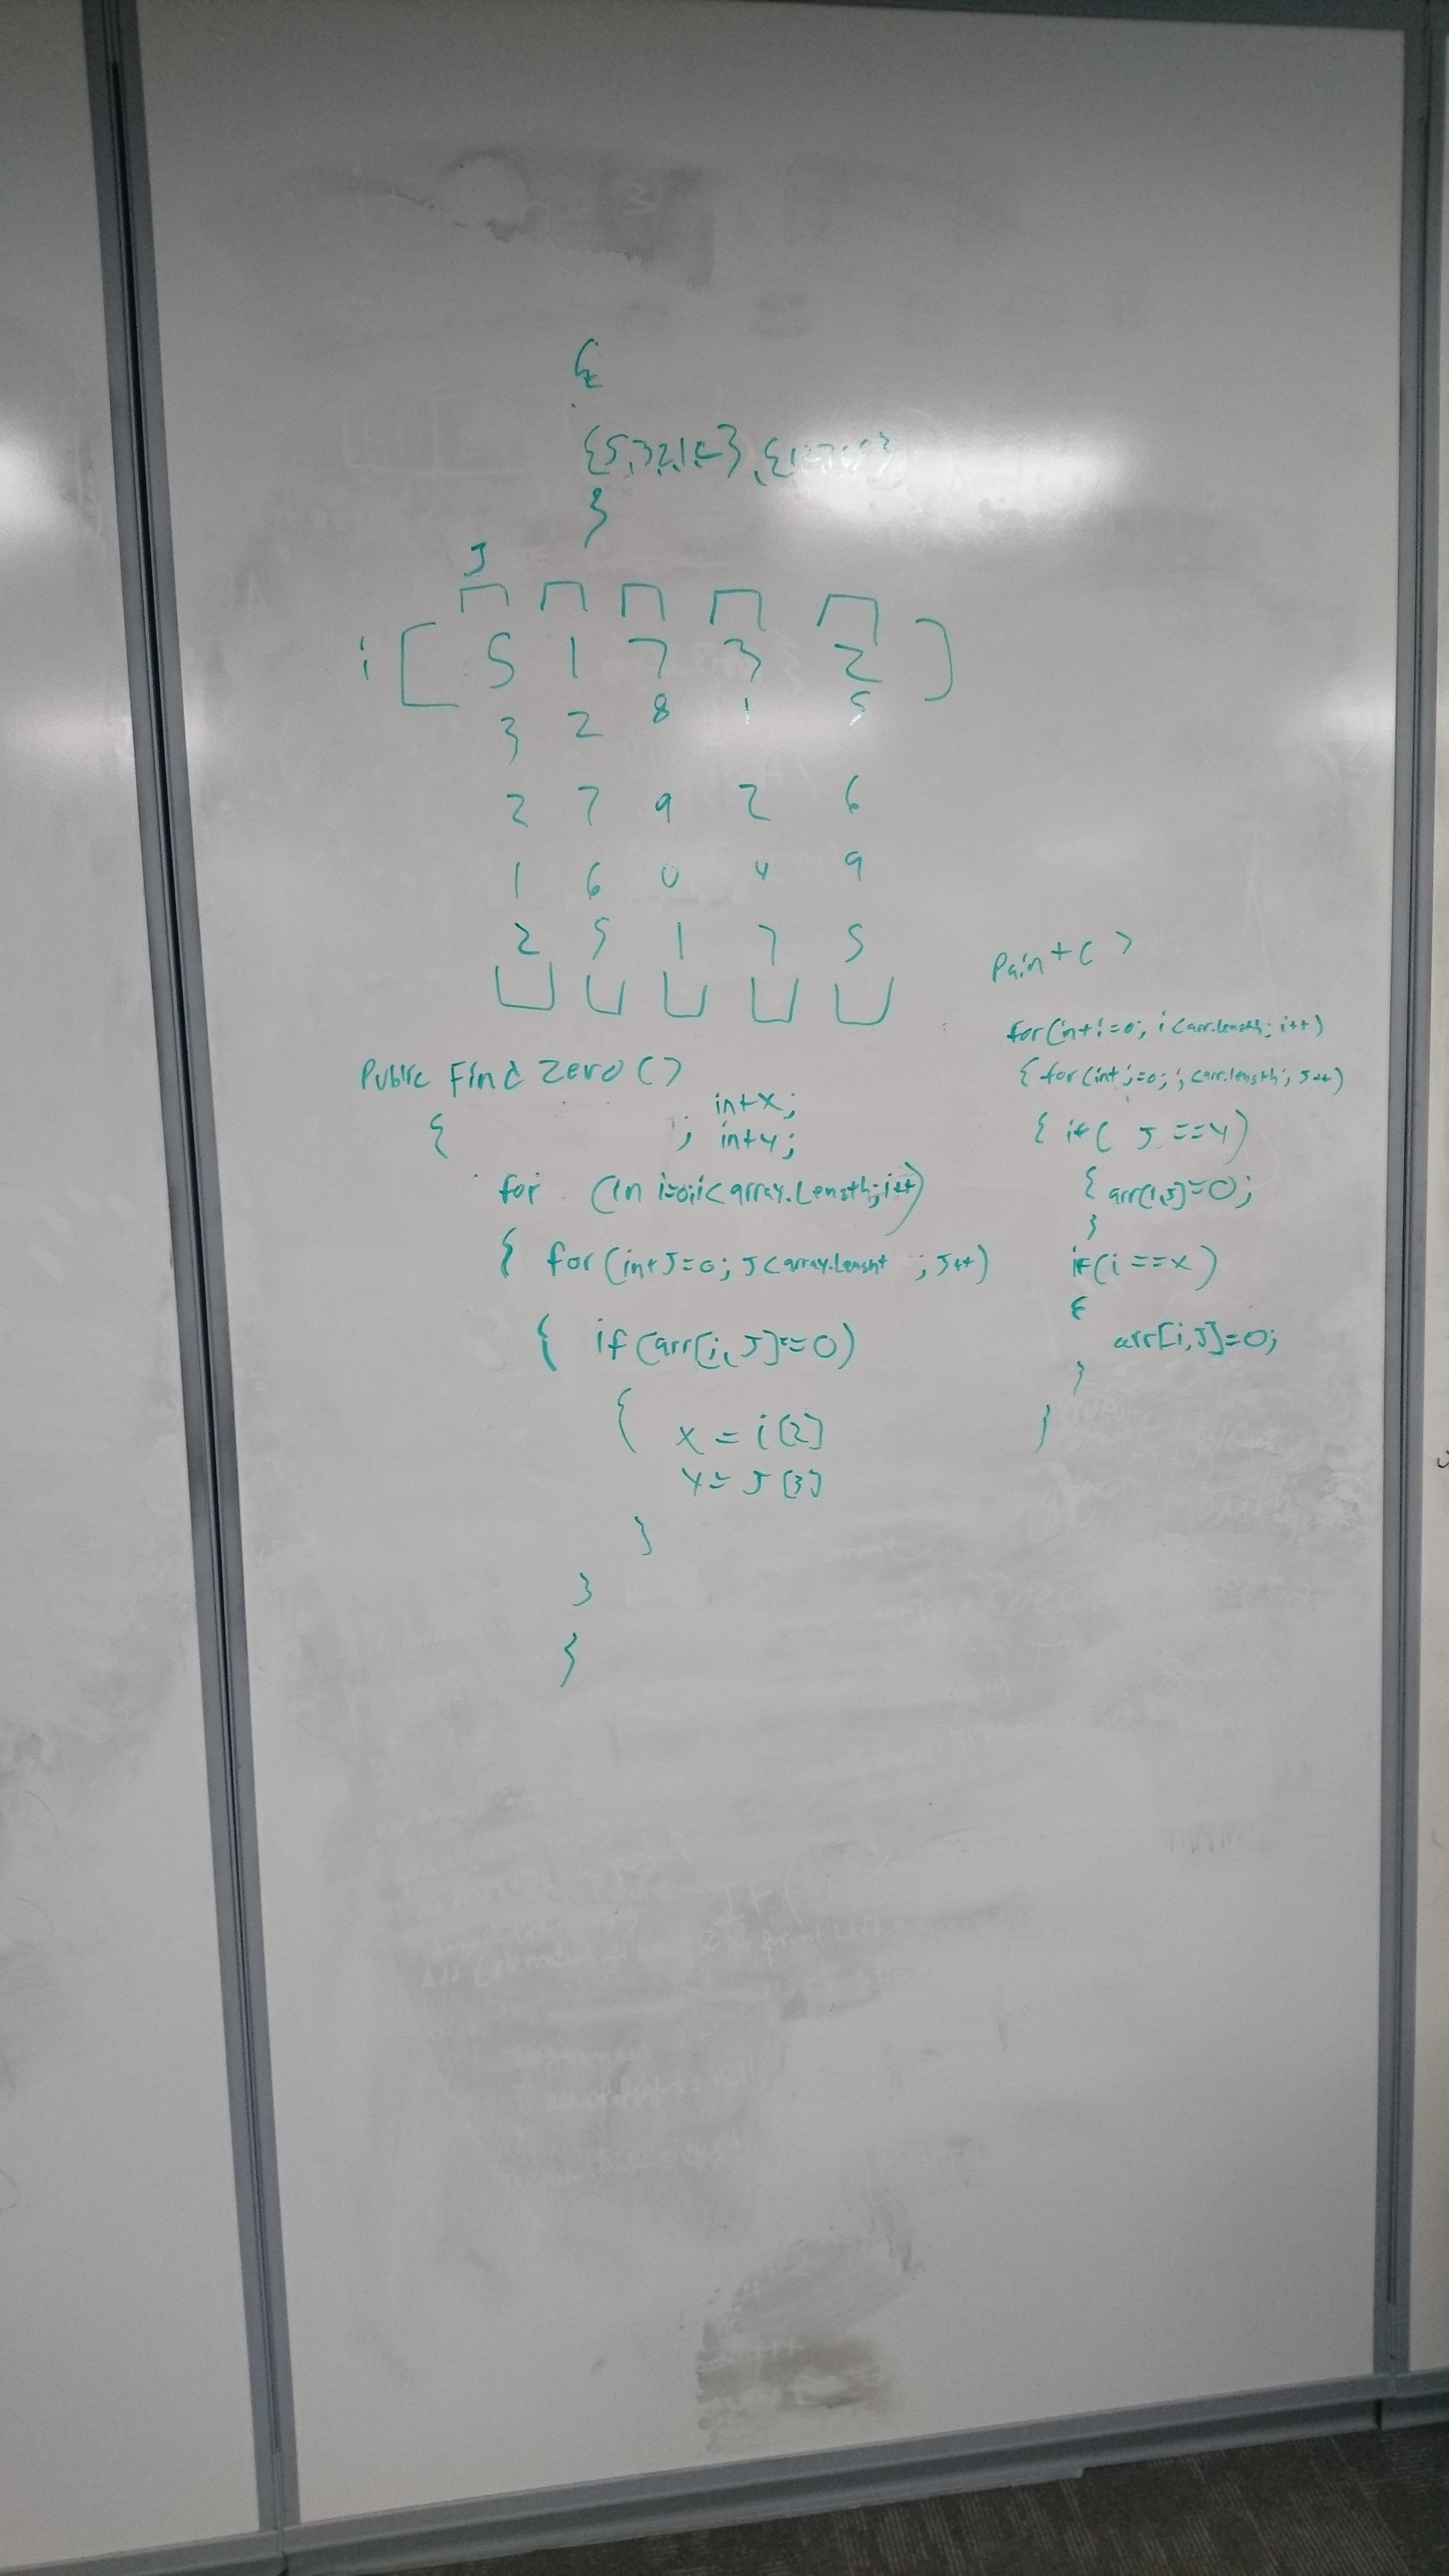 {
{5,3,2,1,2},{
}
J
i [ 5 1 7 3 2 ]
3 2 8 1 5
2 7 9 2 6
1 6 0 4 9
2 5 1 7 5
Public Find Zero ()
{ ; int x;
int y;
for (In i=0; i< array.Length; i++)
{ for (int J=0; J< array.Lenght ; J++)
{ if (arr[i, J]==0)
{ x = i [2]
y = J [3]
}
}
}
Paint ( )
for (int i=0; i < arr.length; i++)
{ for (int j=0; j < arr.length; J++)
{ if ( J ==Y)
{ arr[i,J]=0;
}
if (i ==x)
{
arr[i,J]=0;
}
}